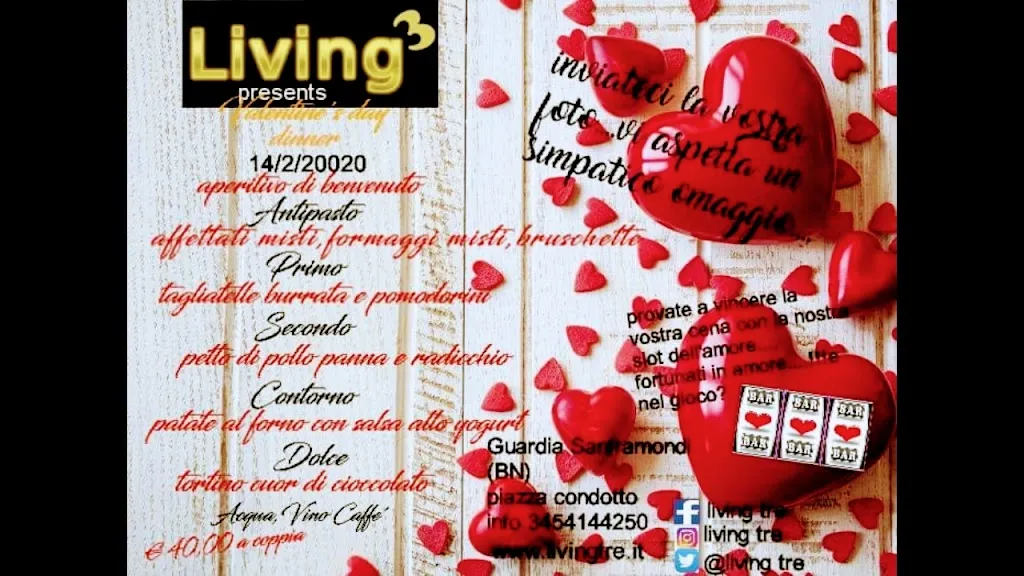 Living³
presents
Valentine's day
dinner
14/2/20020
aperitivo di benvenuto
Antipasto
affettati misti, formaggi misti, bruschette
Primo
tagliatelle burrata e pomodorini
Secondo
petto di pollo panna e radicchio
Contorno
patate al forno con salsa allo yogurt
Dolce
tortino cuor di cioccolato
Acqua, Vino Caffe'
€ 40,00 a coppia
inviateci la vostra
foto...vi aspetta un
simpatico omaggio...
provate a vincere la
vostra cena con la nostra
slot dell'amore......
fortunati in amore....
nel gioco?
BAR BAR BAR
BAR BAR BAR
Guardia Sanframondi
(BN)
piazza condotto
info 3454144250
www.livingtre.it
living tre
living tre
@living tre